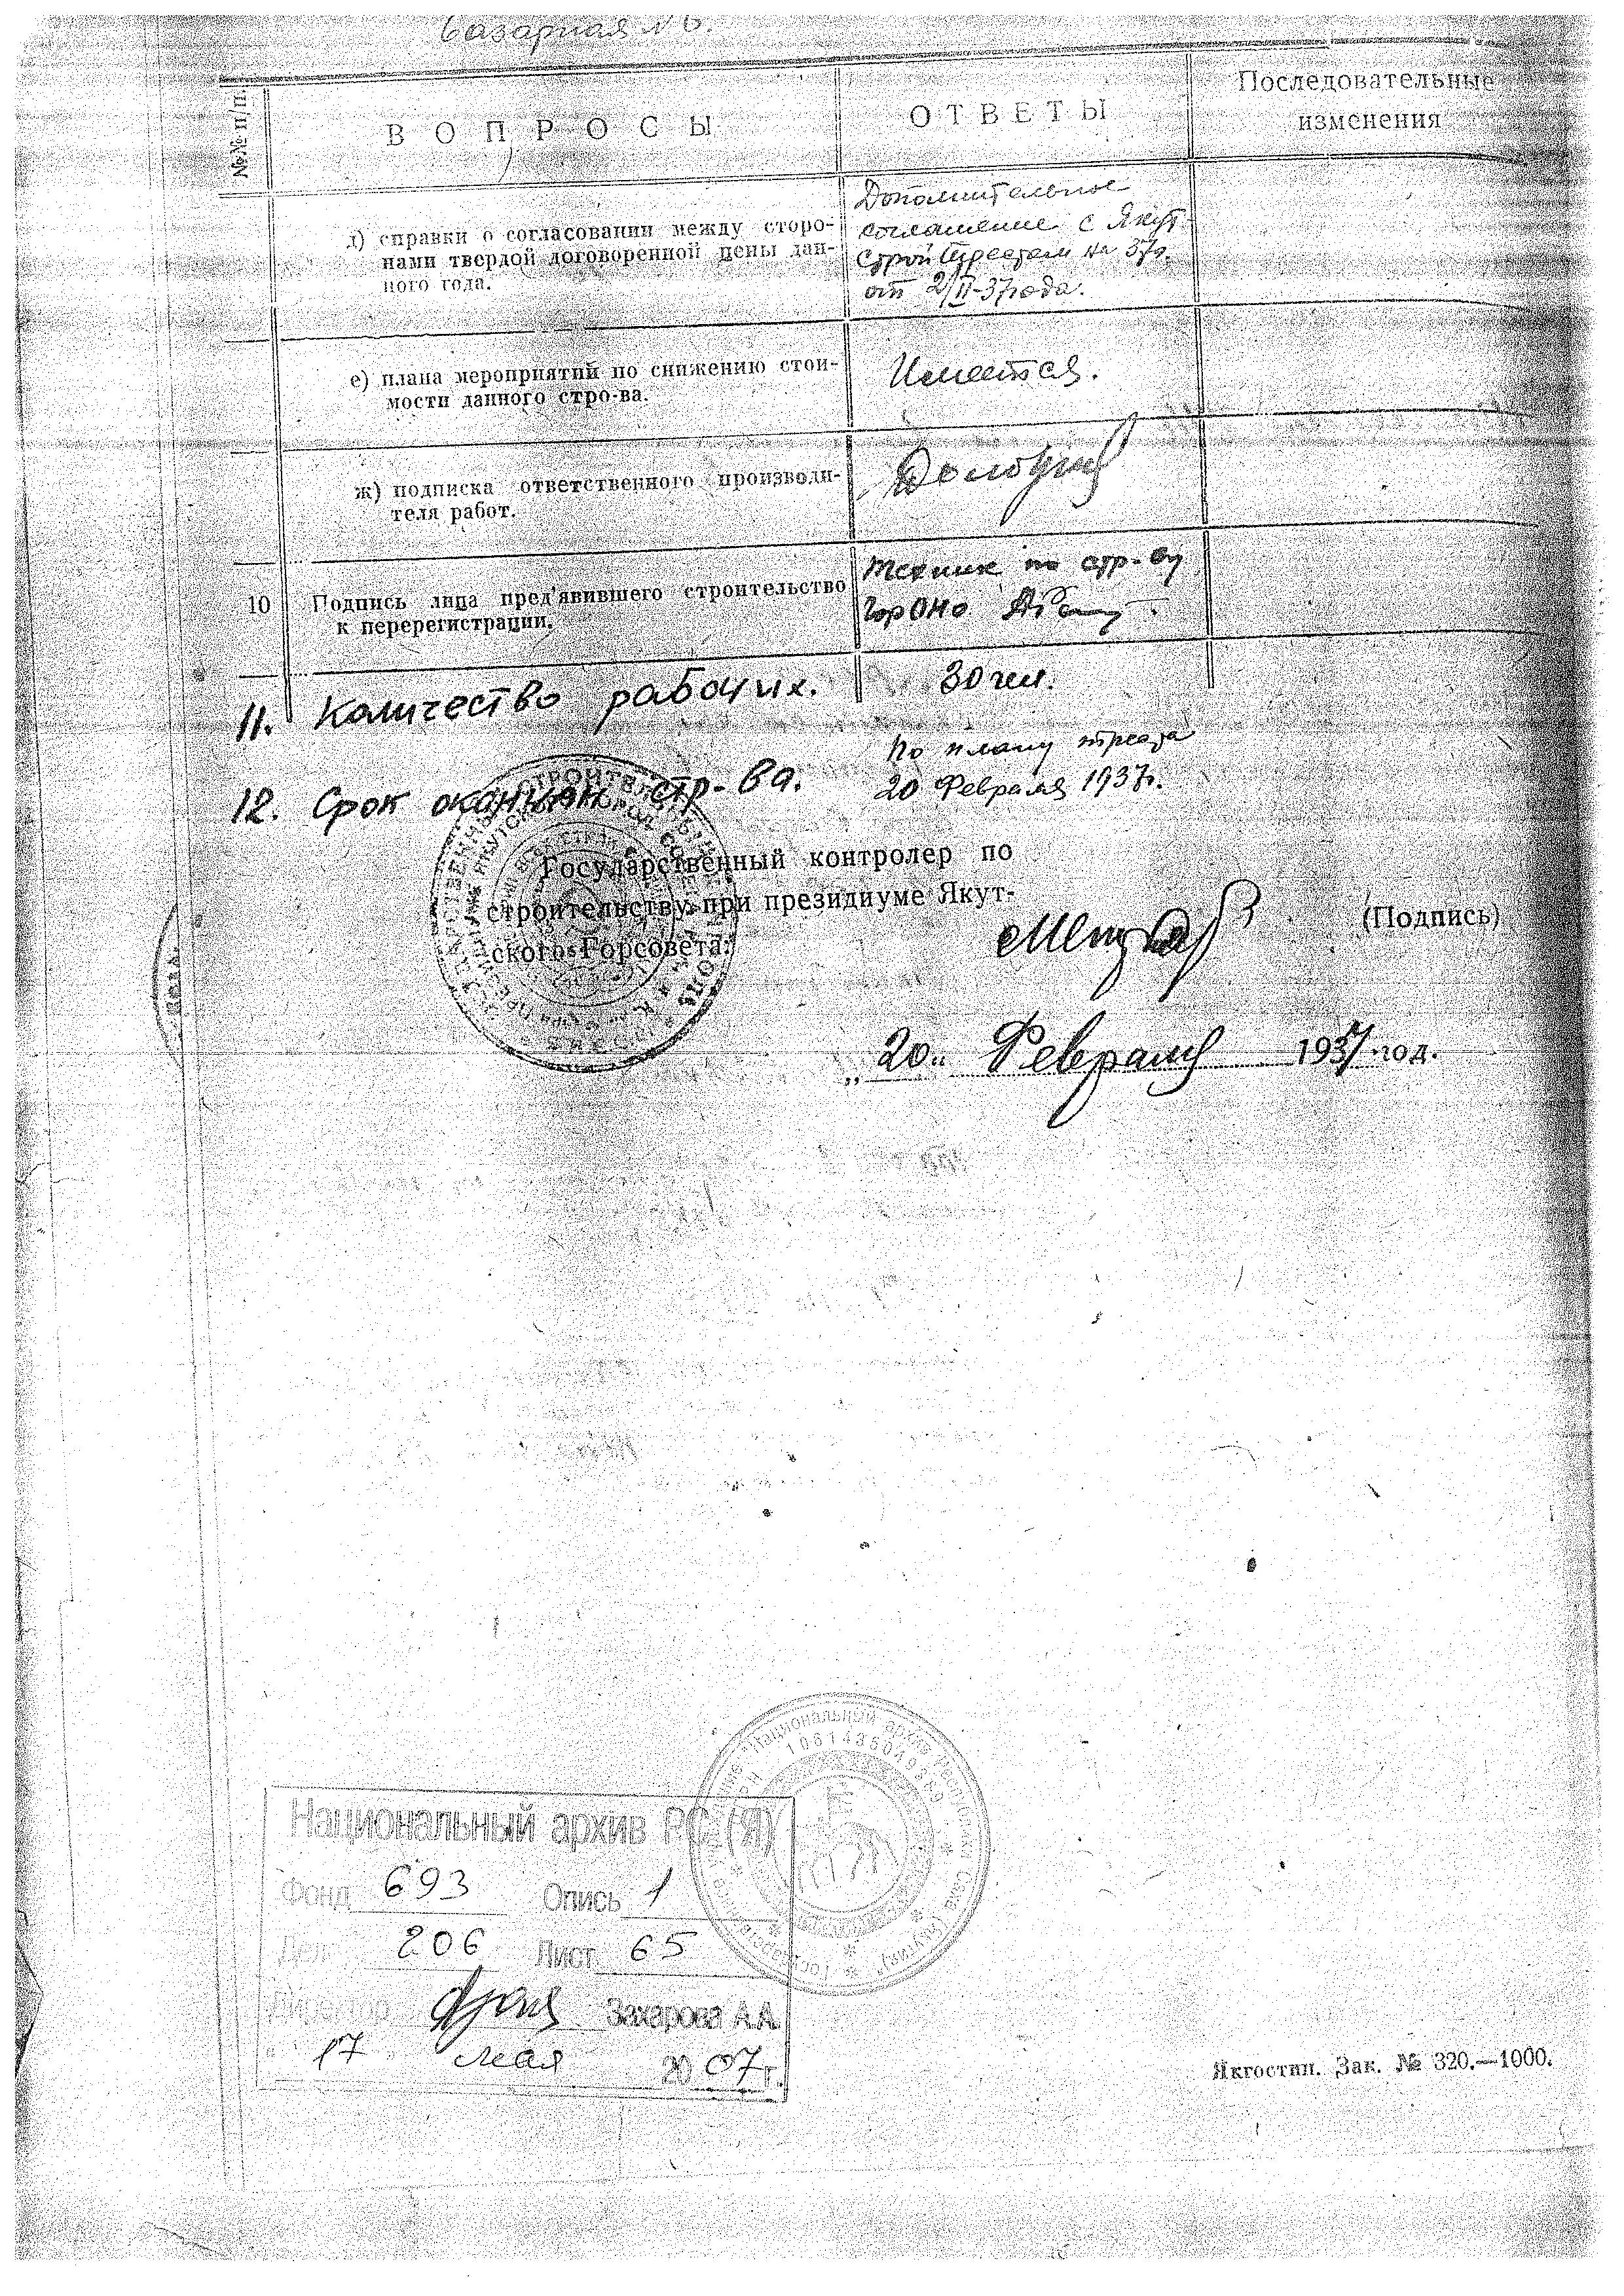 Базарная № 6.
№№ п/п.
ВОПРОСЫ
ОТВЕТЫ
Последовательные
изменения
д) справки о согласовании между сторо-
нами твердой договоренной цены дан-
ного года.
Дополнительное
соглашение с Якут-
стройтрестом на 37г.
от 2/II-37 года.
е) плана мероприятий по снижению стои-
мости данного стро-ва.
Имеется.
ж) подписка ответственного производи-
теля работ.
10
Подпись лица пред'явившего строительство
к перерегистрации.
Техник по стр-ву
ГорОНО
11. Количество рабочих.
30 чел.
12. Срок оканчан стр-ва.
по плану треста
20 Февраля 1937г.
Государственный контролер по
строительству при президиуме Якут-
ского Горсовета:
(Подпись)
„20“ Февраля 1937 год.
Национальный архив РС (Я)
Фонд 693 Опись 1
Дело 206 Лист 65
Директор Захарова А.А.
" 17 " мая 2007 г.
"Национальный архив Республики Саха (Якутия)"
Якгостип. Зак. № 320.—1000.